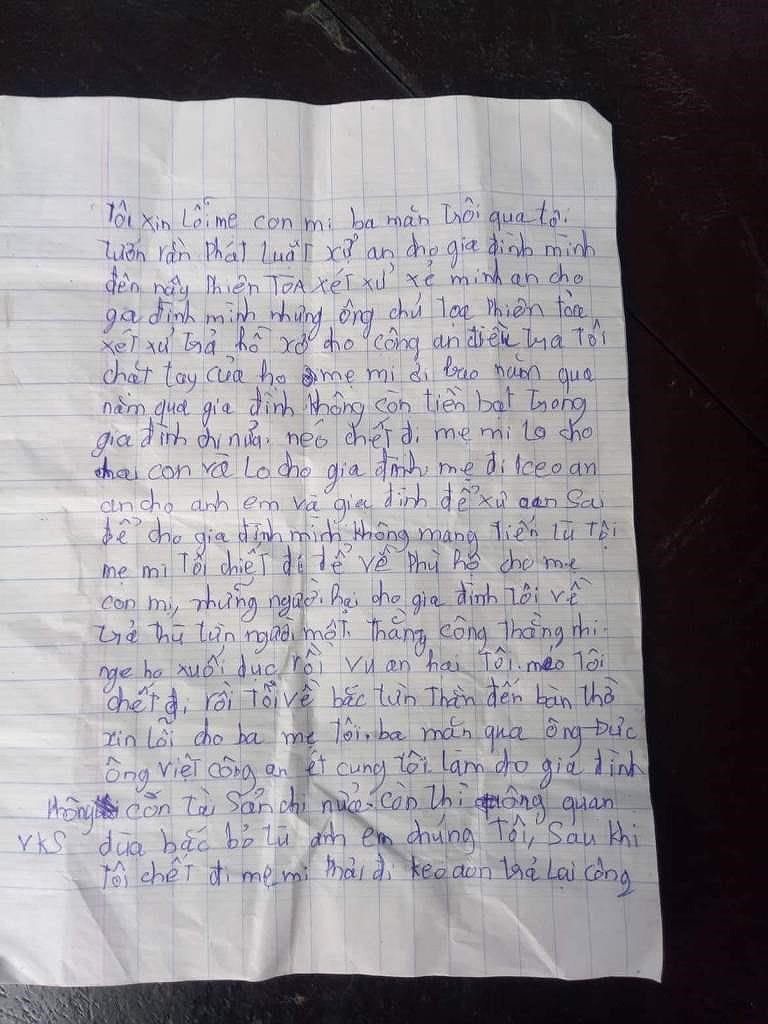 Tôi xin Lỗi mẹ con mi ba măn trôi qua tôi
tưởn rằn Phát Luất xử an cho gia đình mình
đên nây Phiên TOA xét xử xẻ minh an cho
gia đình mình nhưng ông chủ Toạ Phiên tòa
xét xử trả hồ xơ cho công an điều tra Tôi
chặt tay của họ mẹ mi đi bao năm qua
năm qua gia đình không còn tiền bạt trong
gia đình chi nửa. nêó chết đi mẹ mi lo cho
con và Lo cho gia đình. mẹ đi keo an
an cho anh em và gia đình để xử oan Sai
để cho gia đình mình không mang tiến tù tội
mẹ mi tôi chiết đi để về Phù hộ cho mẹ
con mi, những người hại cho gia đình tôi về
trả thù từn người một. thằng công Thằng nhi
nge họ xuối dục rồi vu an hai Tôi. nêo Tôi
chết đi rồi Tôi về bắc từn Thằn đến bàn thờ
xin lỗi cho ba mẹ Tôi. ba măn qua ông Đức
ông việt công an ét cung tôi làm cho giá đình
không còn tài sản chi nửa. còn thì ông quan
VKS dùa bắc bỏ tù anh em chúng Tôi, Sau khi
tôi chết đi mẹ mi Phải đi keo aon trả lại công